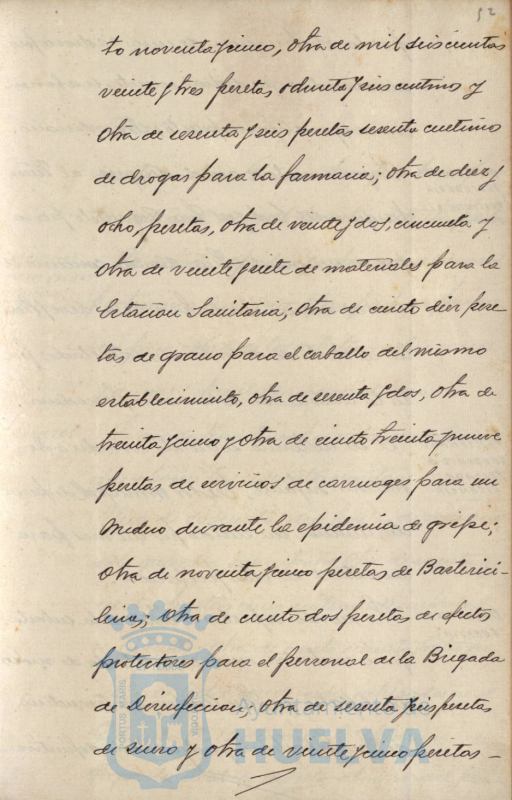 52
to noventa y cinco, otra de mil seiscientas
veinte y tres pesetas ochenta y seis centimos y
otra de sesenta y seis pesetas sesenta centimos
de drogas para la farmacia; otra de diez y
ocho, pesetas, otra de veinte y dos, cincuenta y
otra de veinte y siete de materiales para la
Estacion Sanitaria; otra de ciento diez pese-
tas de grano para el caballo del mismo
establecimiento, otra de sesenta y dos, otra de
treinta y cinco y otra de ciento treinta y nueve
pesetas de servicios de carruages para un
Medico durante la epidemia de gripe;
otra de noventa y cinco pesetas de Bacterici-
lina; otra de ciento dos pesetas de efectos
protectores para el personal de la Brigada
de Desinfeccion; otra de sesenta y seis pesetas
de suero y otra de veinte y cinco pesetas -
PORTUS MARIS
CUSTODIA
Ayuntamiento de
HUELVA